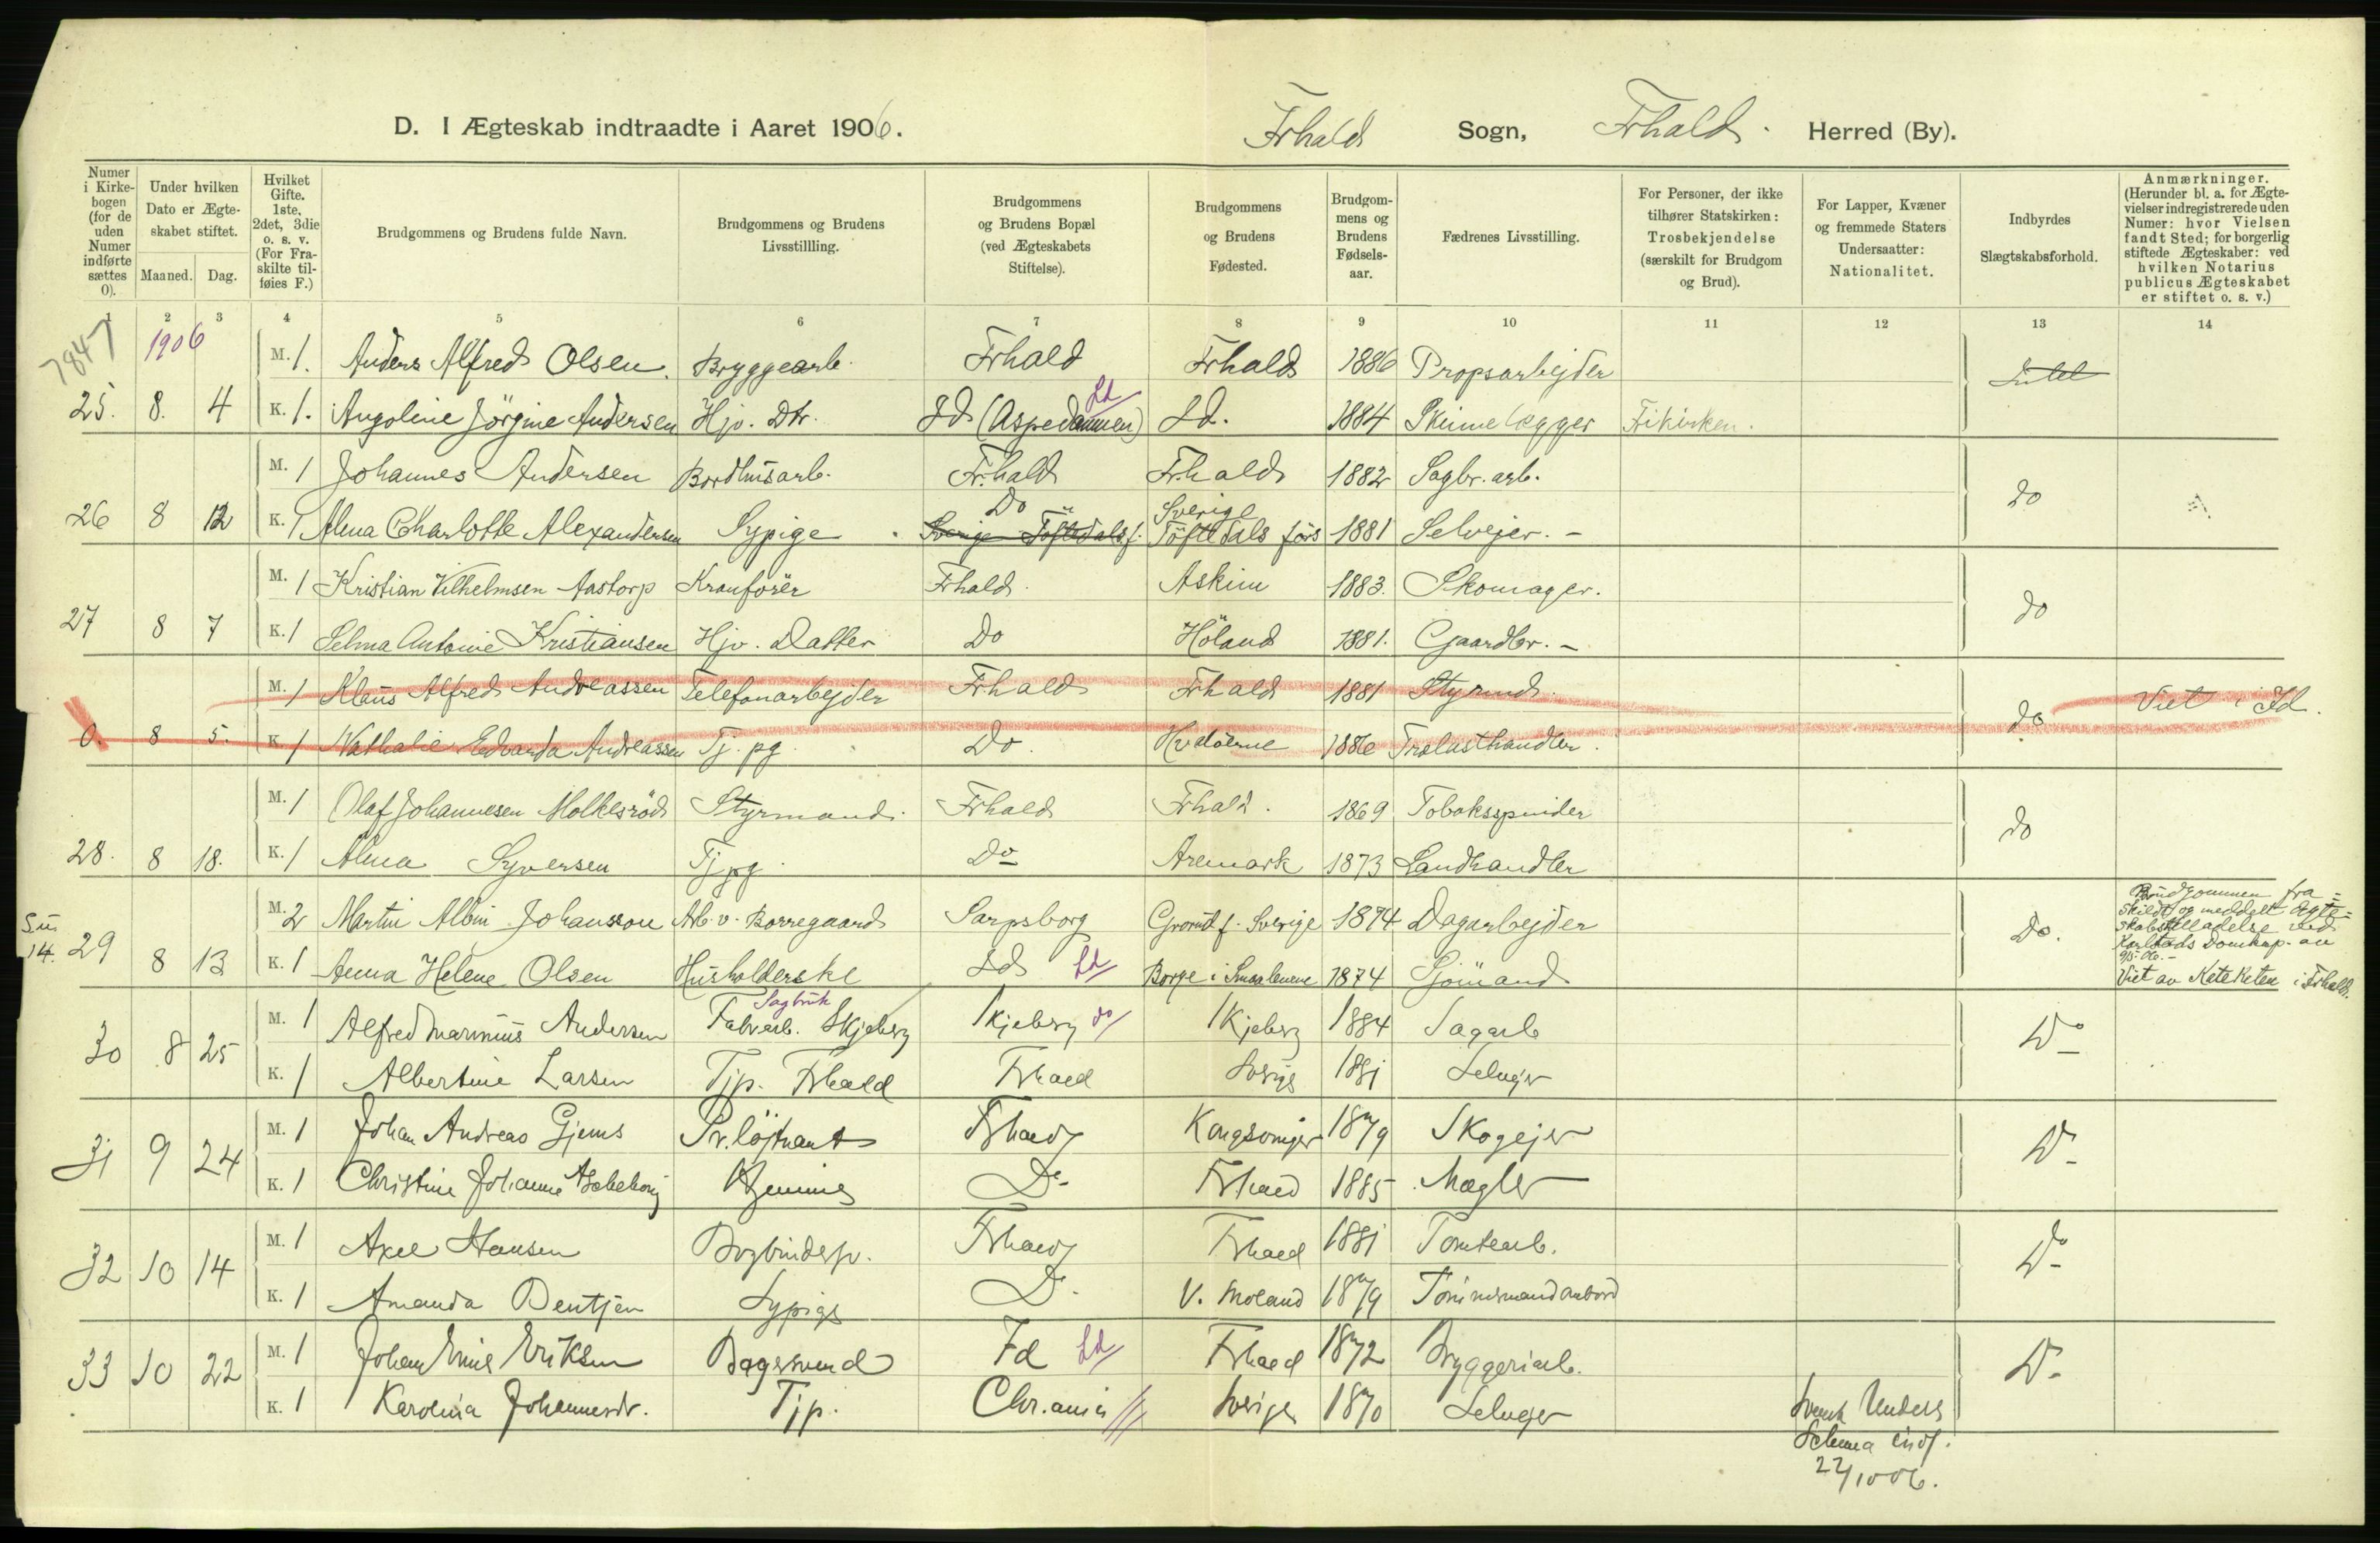 D. I Ægteskab indtraadte i Aaret 1906. Frhald Sogn, Frhald. Herred (By).
Numer i Kirkebogen (for de uden Numer indførte sættes 0).
Under hvilken Dato er Ægteskabet stiftet.
Maaned. Dag.
Hvilket Gifte. 1ste, 2det, 3die o. s. v. (For Fraskilte tilføies F.)
Brudgommens og Brudens fulde Navn.
Brudgommens og Brudens Livsstillling.
Brudgommens og Brudens Bopæl (ved Ægteskabets Stiftelse).
Brudgommens og Brudens Fødested.
Brudgommens og Brudens Fødselsaar.
Fædrenes Livsstilling.
For Personer, der ikke tilhører Statskirken: Trosbekjendelse (særskilt for Brudgom og Brud).
For Lapper, Kvæner og fremmede Staters Undersaatter: Nationalitet.
Indbyrdes Slægtskabsforhold.
Anmærkninger. (Herunder bl. a. for Ægtevielser indregistrerede uden Numer: hvor Vielsen fandt Sted; for borgerlig stiftede Ægteskaber: ved hvilken Notarius publicus Ægteskabet er stiftet o. s. v.)
1 2 3 4 5 6 7 8 9 10 11 12 13 14
7847 1906
M. 1. Anders Alfred Olsen. Bryggearb. Frhald Frhald 1886 Propsarbejder Intet
25. 8. 4 K. 1. Angoline Jörgine Andersen Hjv. Dtr. Id (Aspedammen) Id Id. 1884 Skinnelægger Frikirken.
M. 1 Johannes Andersen Bordhusarb. Fr.hald Fr.hald 1882 Sagbr. arb. do
26 8 12 K. 1 Alma Charlotte Alexandersen Sypige Do Sverige Töftedals f. Sverige Töftedals förs 1881 Selvejer. -
M. 1 Kristian Vilhelmsen Aastorp Kranförer Frhald. Askim 1883. Skomager. do
27 8 7 K. 1 Selma Antonie Kristiansen Hjv. Datter Do Höland 1881. Gaardbr. -
M. 1 Klaus Alfred Andreassen Telefonarbejder Frhald Frhald 1881 Styrmd. do Viet i Id.
0. 8 5. K. 1 Nathalie Edvarda Andreassen Tj. pg. Do. Hvalöerne 1886 Trælasthandler.
M. 1 Olaf Johannesen Molkesröd Styrmand. Frhald Frhald. 1869 Tobakspinder do
28. 8 18. K. 1 Alma Syversen Tj pg. Do Aremark 1873 Landhandler
M. 2 Martin Albin Johansson Arb. v. Borregaard Sarpsborg f. Sverige 1874 Dagarbejder Do.
Brudgommen fra-
skildt og meddelt Ægte-
skabstilladelse ved
Karlstads Domkap. av
14. 29 8 13 K. 1 Anna Helene Olsen Husholderske Id Id Borge i Smaalenene 1874 Sjömand
Viet av Kateketen i Frhald.
Sagbruk
M. 1 Alfred Marinius Andersen Fabarb. Skjeberg Skjeberg do Skjeberg 1884 Sagarb Do
30 8 25 K. 1 Albertine Larsen Tjp. Frhald Frhald Sverige 1881 Selvejer
M. 1 Johan Andreas Gjems Pr. löjtnant Frhald Kongsvinger 1879 Skogejer Do
31 9 24 K. 1 Christine Johanne Hjemme Do Frhald 1885 Mægler
M. 1 Axel Hansen Bogbindersv. Frhald Frhald 1881 Tomtearb. Do
32 10 14 K. 1 Amanda Bentsen Sypige Do. V. Moland 1879 Tömmermand ombord
M. 1 Johan Emil Eriksen Bagersvend Id Id Frhald 1872 Bryggeriarb. Do
33 10 22 K. 1 Karolina Johannesdr. Tjp. Chr.ania Sverige 1870 Selvejer Svensk Unders
Schema indf.
22/10 06.